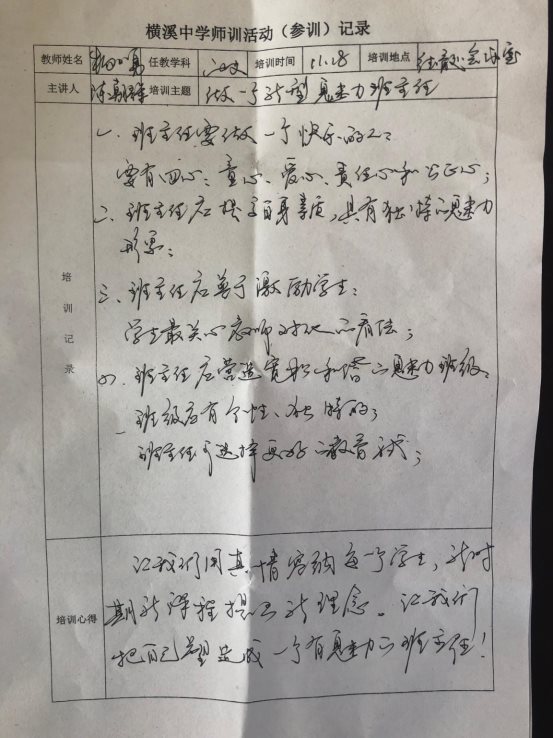 横溪中学师训活动（参训）记录
教师姓名 任教学科 语文 培训时间 11.28 培训地点
主讲人 培训主题 做一个新型魅力班主任
一、班主任要做一个快乐的人：
要有四心：童心、爱心、责任心和公正心；
二、班主任应提高自身素质，具有独特的魅力
形象；
三、班主任应善于激励学生：
学生最关心教师对他的看法；
四、班主任应营造宽松和谐的魅力班级：
班级应有个性、独特的；
班主任可选择更好的教育方式；
培训记录
让我们用真情容纳每个学生，新时
期新课程提出新理念。让我们
把自己塑造成一个有魅力的班主任！
培训心得